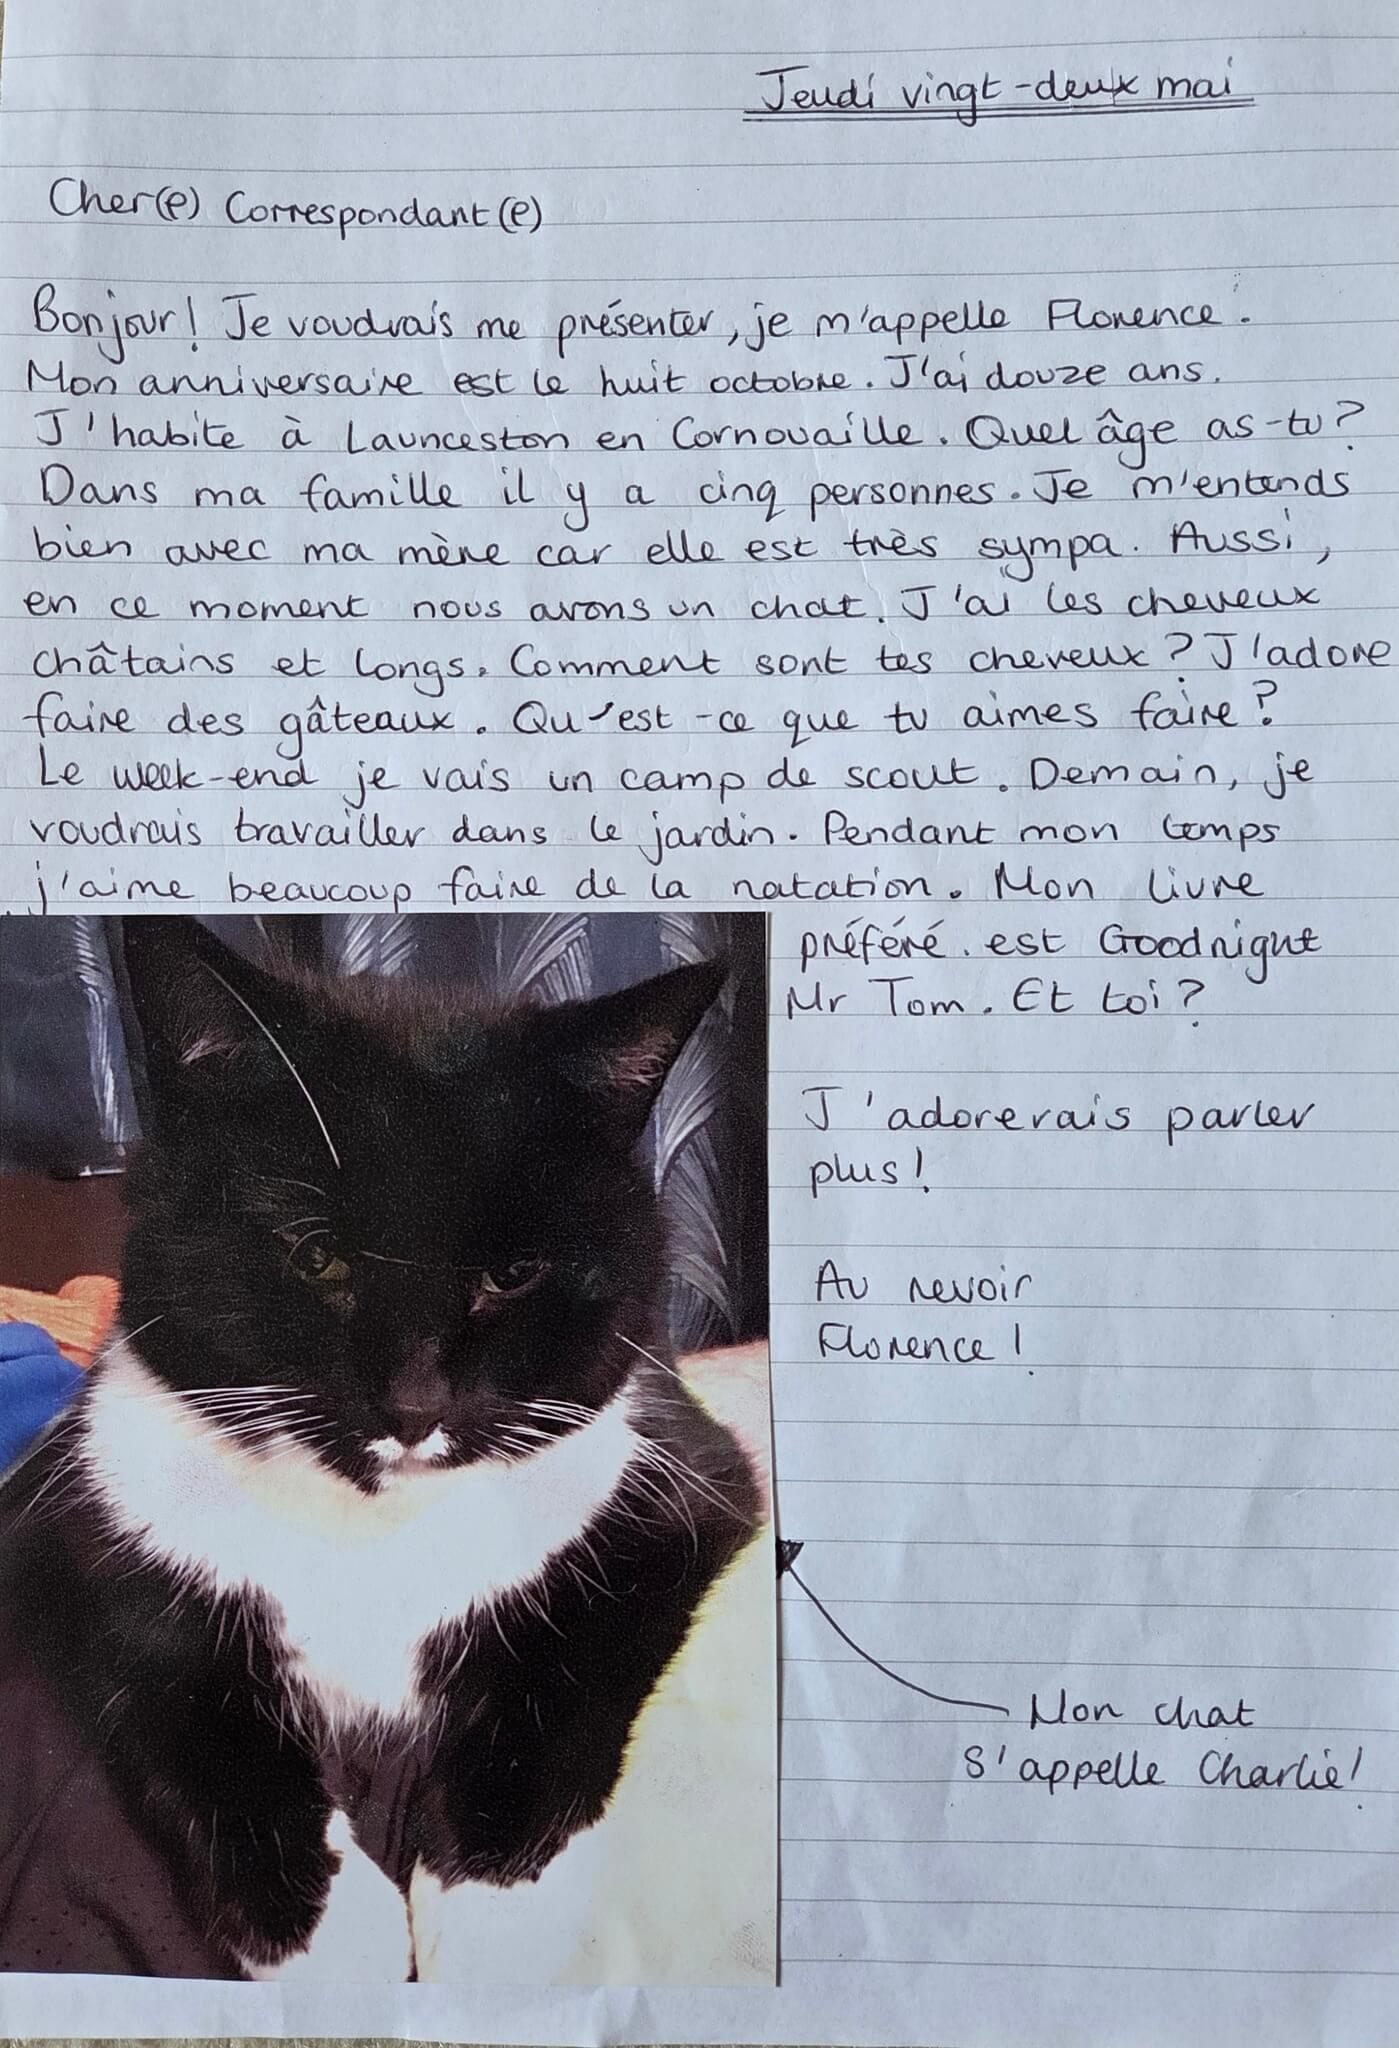 Jeudi vingt-deux mai
Cher(e) Correspondant(e)
Bonjour! Je voudrais me présenter, je m'appelle Florence.
Mon anniversaire est le huit octobre. J'ai douze ans.
J'habite à Launceston en Cornouaille. Quel âge as-tu?
Dans ma famille il y a cinq personnes. Je m'entends
bien avec ma mère car elle est très sympa. Aussi,
en ce moment nous avons un chat. J'ai les cheveux
châtains et longs. Comment sont tes cheveux? J'adore
faire des gâteaux. Qu'est-ce que tu aimes faire?
Le week-end je vais un camp de scout. Demain, je
voudrais travailler dans le jardin. Pendant mon temps
j'aime beaucoup faire de la natation. Mon livre
préféré. est Goodnight
Mr Tom. Et toi?
J'adorerais parler
plus!
Au revoir
Florence!
Mon chat
s'appelle Charlie!